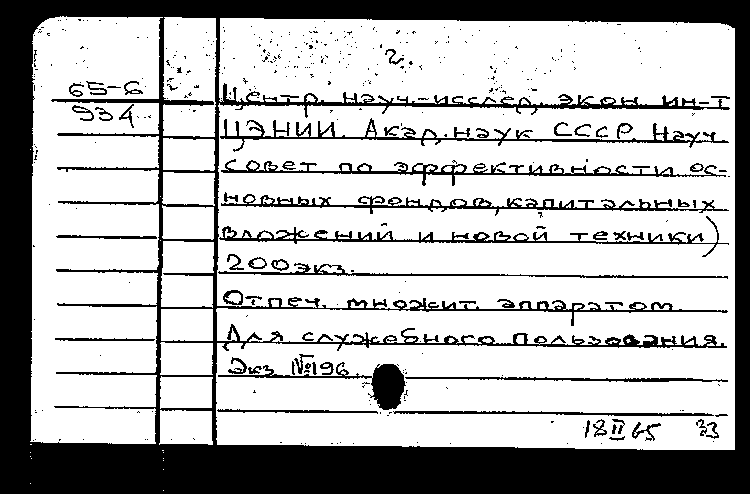 2.
65-6
934
Центр. науч.-исслед. экон. ин-т
ЦЭНИИ. Акад. наук СССР. Науч.
совет по эффективности ос-
новных фондов, капитальных
вложений и новой техники)
200 экз.
Отпеч. множит. аппаратом.
Для служебного пользования.
Экз. №196.
18 II 65 33